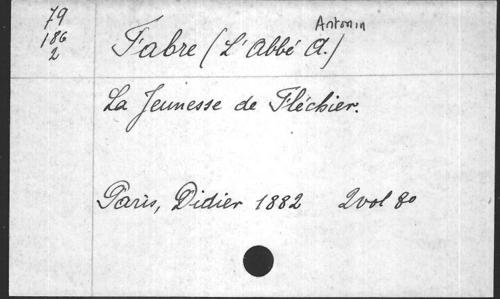 79
186
2
Antonin
Fabre (L'Abbé A.)
La Jeunesse de Fléchier.
Paris, Didier 1882 2 vol 8o